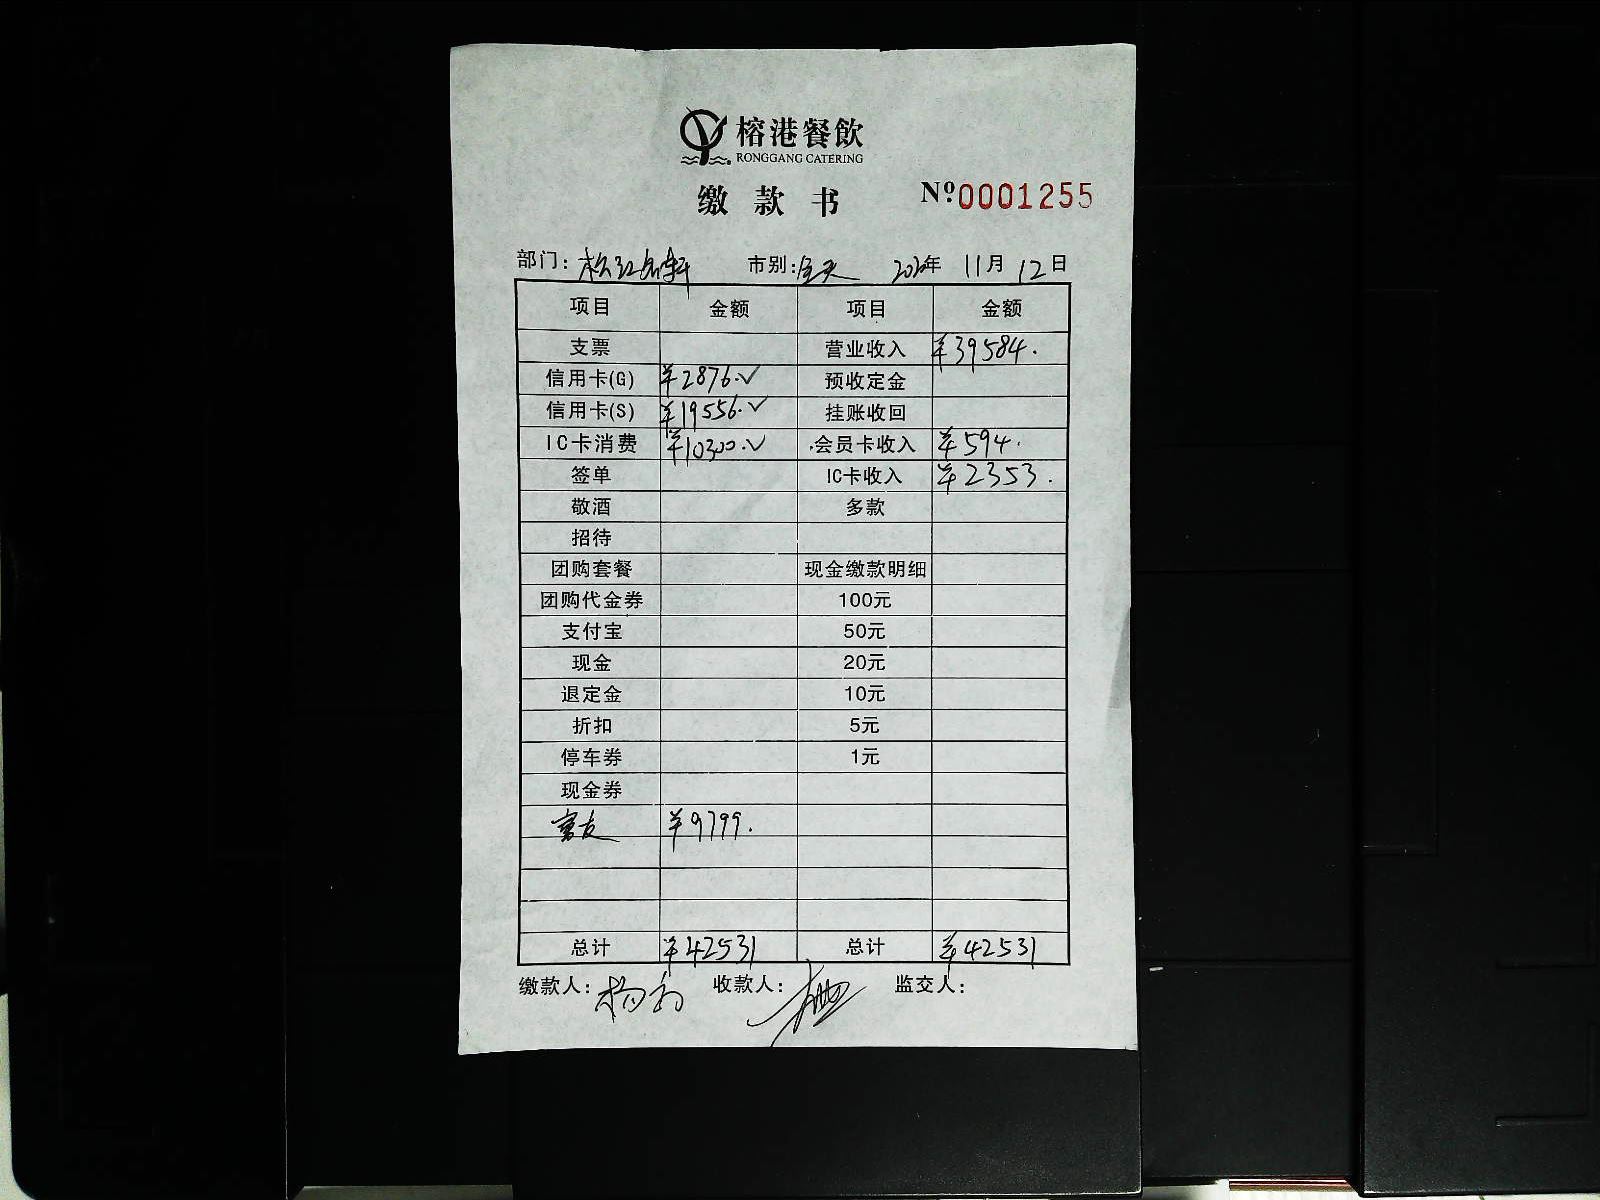 榕港餐飲
RONGGANG CATERING
缴款书 Nº0001255
部门: 市别:全天 2020年 11月 12日
项目 金额 项目 金额
支票 营业收入 ¥39584.
信用卡(G) ¥2876.✓ 预收定金
信用卡(S) ¥19556.✓ 挂账收回
IC卡消费 ¥10300.✓ 会员卡收入 ¥594.
签单 IC卡收入 ¥2353.
敬酒 多款
招待
团购套餐 现金缴款明细
团购代金券 100元
支付宝 50元
现金 20元
退定金 10元
折扣 5元
停车券 1元
现金券
¥9799.
总计 ¥42531 总计 ¥42531
缴款人: 收款人: 监交人: